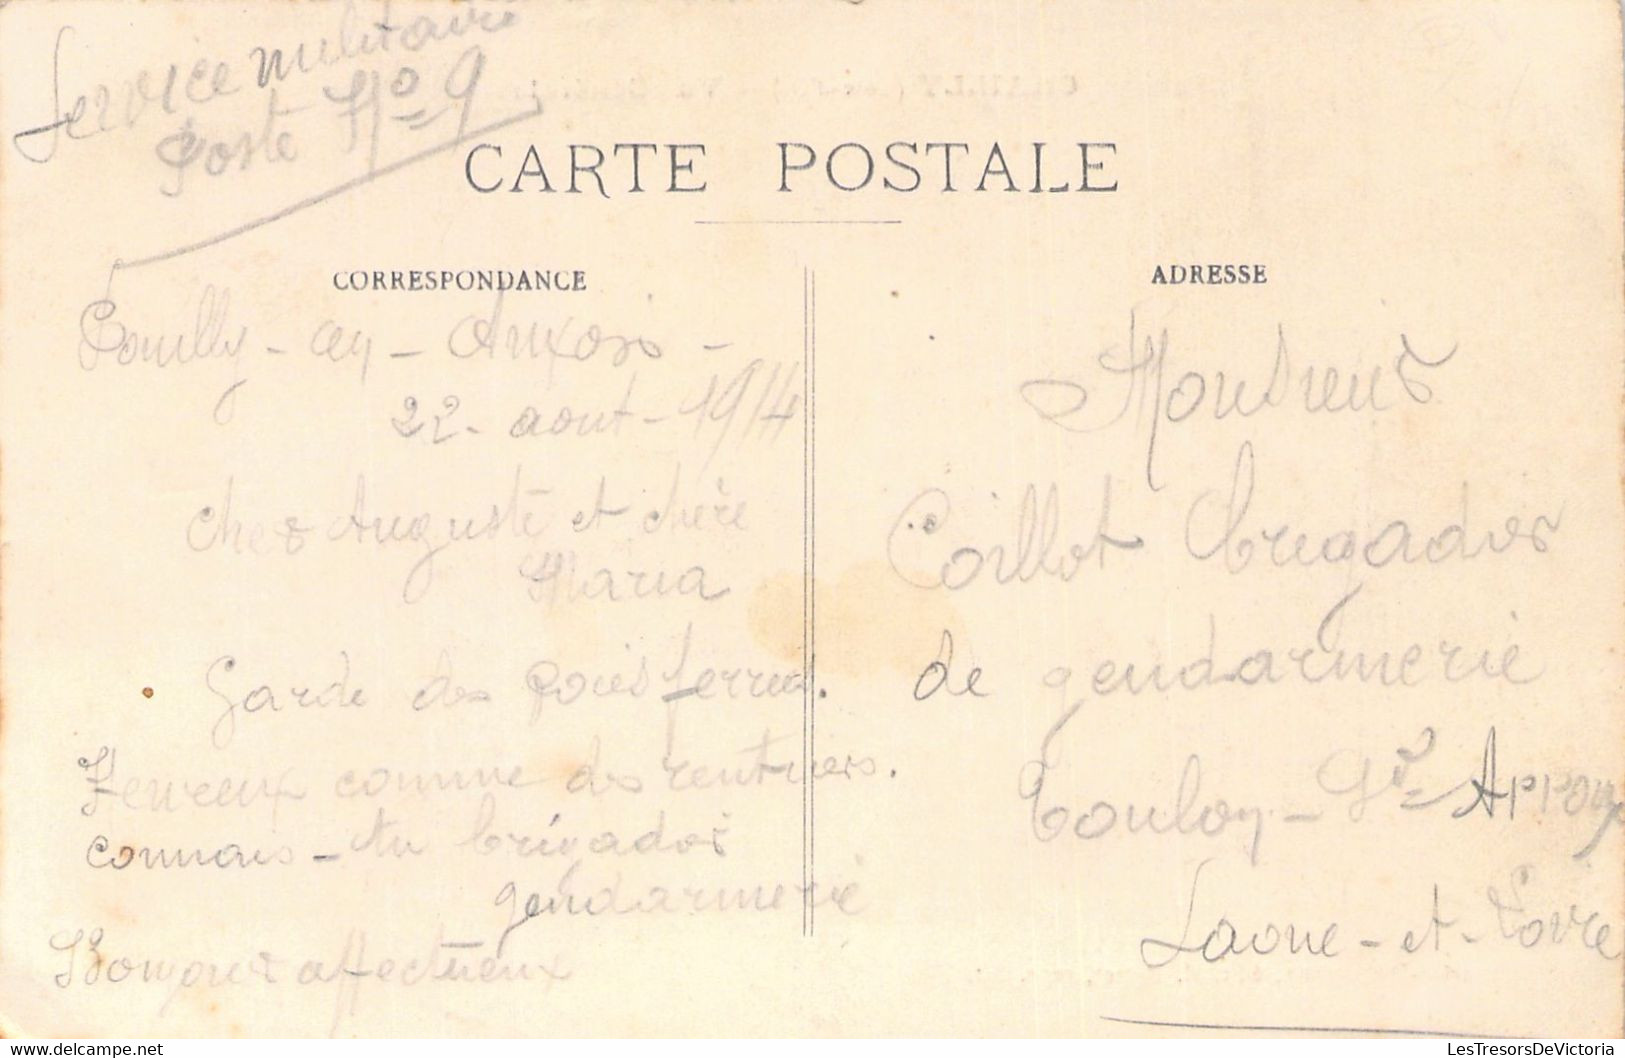 Service militaire
Poste No 9
CARTE POSTALE
CORRESPONDANCE
Pouilly-en-Auxois-
22-aout-1914
cher Auguste et chère
Maria
Garde des voies ferrees.
Hereux comme des rentiers.
connais-tu brigadier
gendarmerie
Bonjour affectueux
ADRESSE
Monsieur
Coillot brigadier
de gendarmerie
Toulon-Sr-Arroux
Saone-et-Loire
LesTresorsDeVictoria